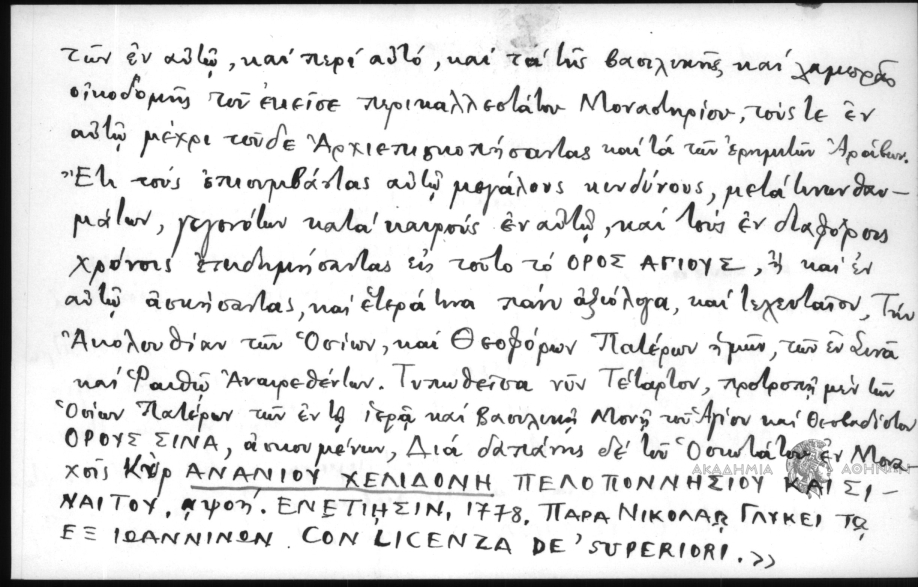 τῶν ἐν αὐτῷ, καί περί αὐτό, καί τά τῆς βασιλικῆς καί λαμπρᾶς
οἰκοδομῆς τοῦ ἐκεῖσε περικαλλεστάτου Μοναστηρίου, τούς τε ἐν
αὐτῷ μέχρι τοῦδε Ἀρχιεπισκοπήσαντας καί τά τῶν ἐρημιτῶν Ἀράβων.
Ἔτι τούς ἐπισυμβάντας αὐτῷ μεγάλους κινδύνους, μετά τινων θαυ-
μάτων, γεγονότων κατά καιρούς ἐν αὐτῷ, καί τούς ἐν διαφόροις
χρόνοις ἐπιδημήσαντας εἰς τοῦτο τό ΟΡΟΣ ΑΓΙΟΥΣ, ἤ καί ἐν
αὐτῷ ἀσκήσαντας, καί ἕτερά τινα πάνυ ἀξιόλογα, καί τελευταῖον, Τήν
Ἀκολουθίαν τῶν Ὁσίων, καί Θεοφόρων Πατέρων ἡμῶν, τῶν ἐν Σινᾷ
καί Ῥαιθῷ Ἀναιρεθέντων. Τυπωθεῖσα νῦν Τέταρτον, προτροπῇ μέν τῶν
Ὁσίων Πατέρων τῶν ἐν τῇ ἱερᾷ καί Βασιλικῇ Μονῇ τοῦ Ἁγίου καί Θεοβαδίστου
ΟΡΟΥΣ ΣΙΝΑ, ἀσκουμένων, Διά δαπάνης δέ τοῦ Ὁσιωτάτου ἐν Μονα-
χοῖς Κὺρ ΑΝΑΝΙΟΥ ΧΕΛΙΔΟΝΗ ΠΕΛΟΠΟΝΝΗΣΙΟΥ ΚΑΙ ΣΙ-
ΝΑΙΤΟΥ. αψοή. ΕΝΕΤΙΗΣΙΝ, 1778. ΠΑΡΑ ΝΙΚΟΛΑῼ ΓΛΥΚΕΙ Τῼ
ΕΞ ΙΩΑΝΝΙΝΩΝ. CON LICENZA DE' SUPERIORI.»
ΑΚΑΔΗΜΙΑ ΑΘΗΝΩΝ